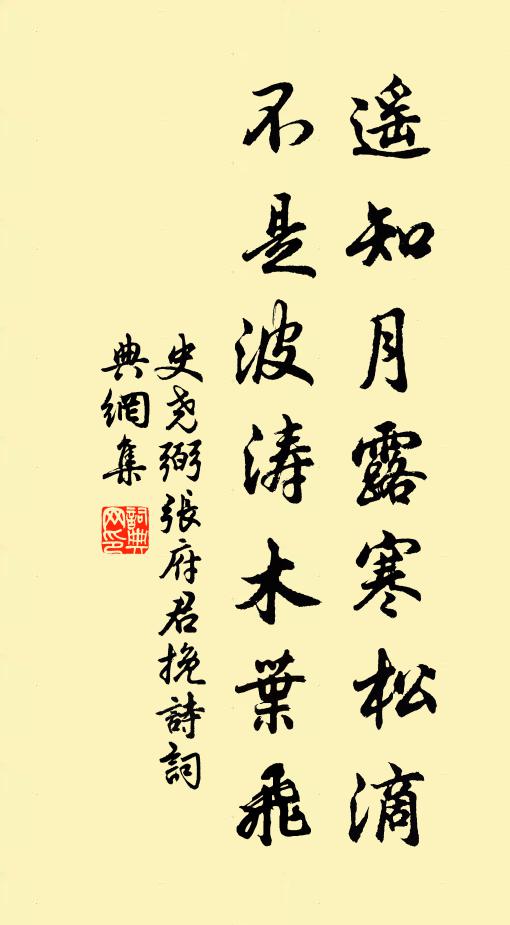 遥知月露寒松滴
不是波涛木葉飛
史尧弼張府君挽詩詞
典網集
詞典
网印